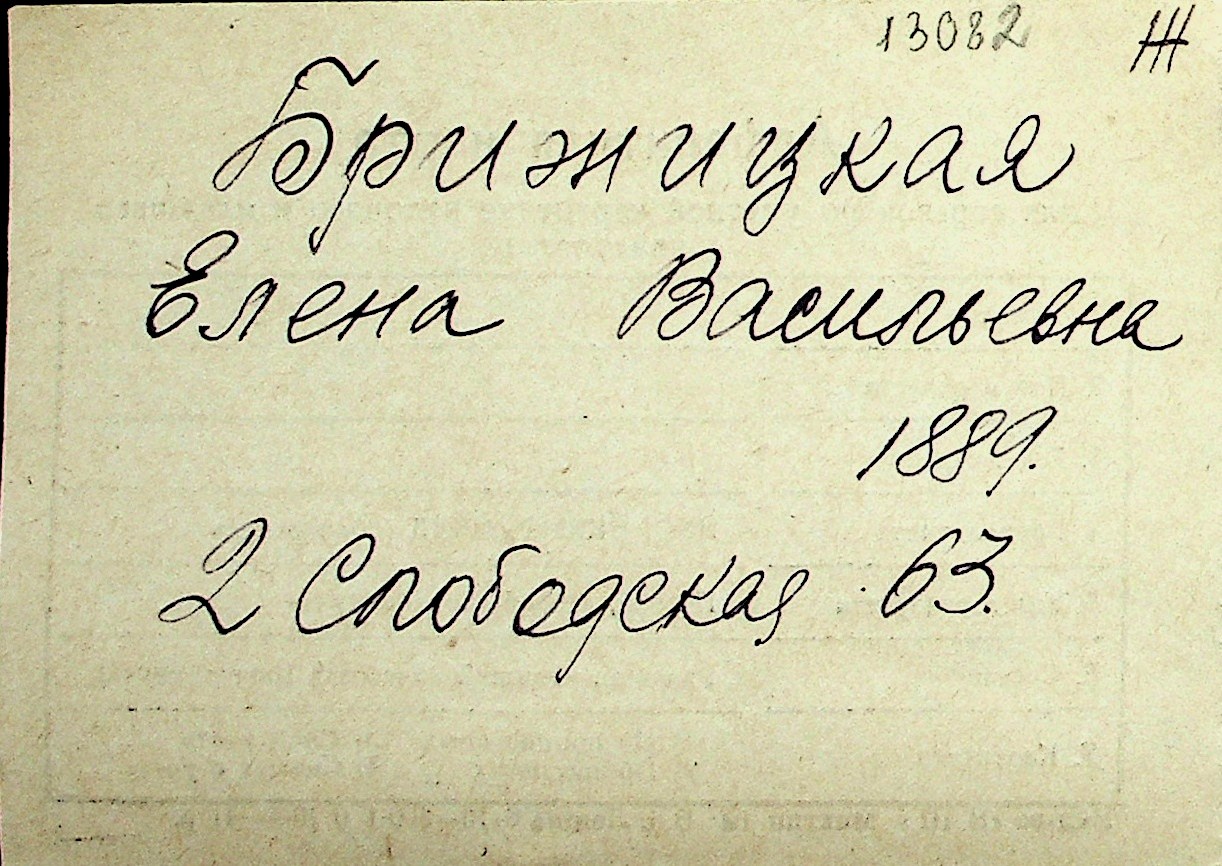 13082 Ж
Брижицкая
Елена Васильевна
1889.
2 Слободская 63.